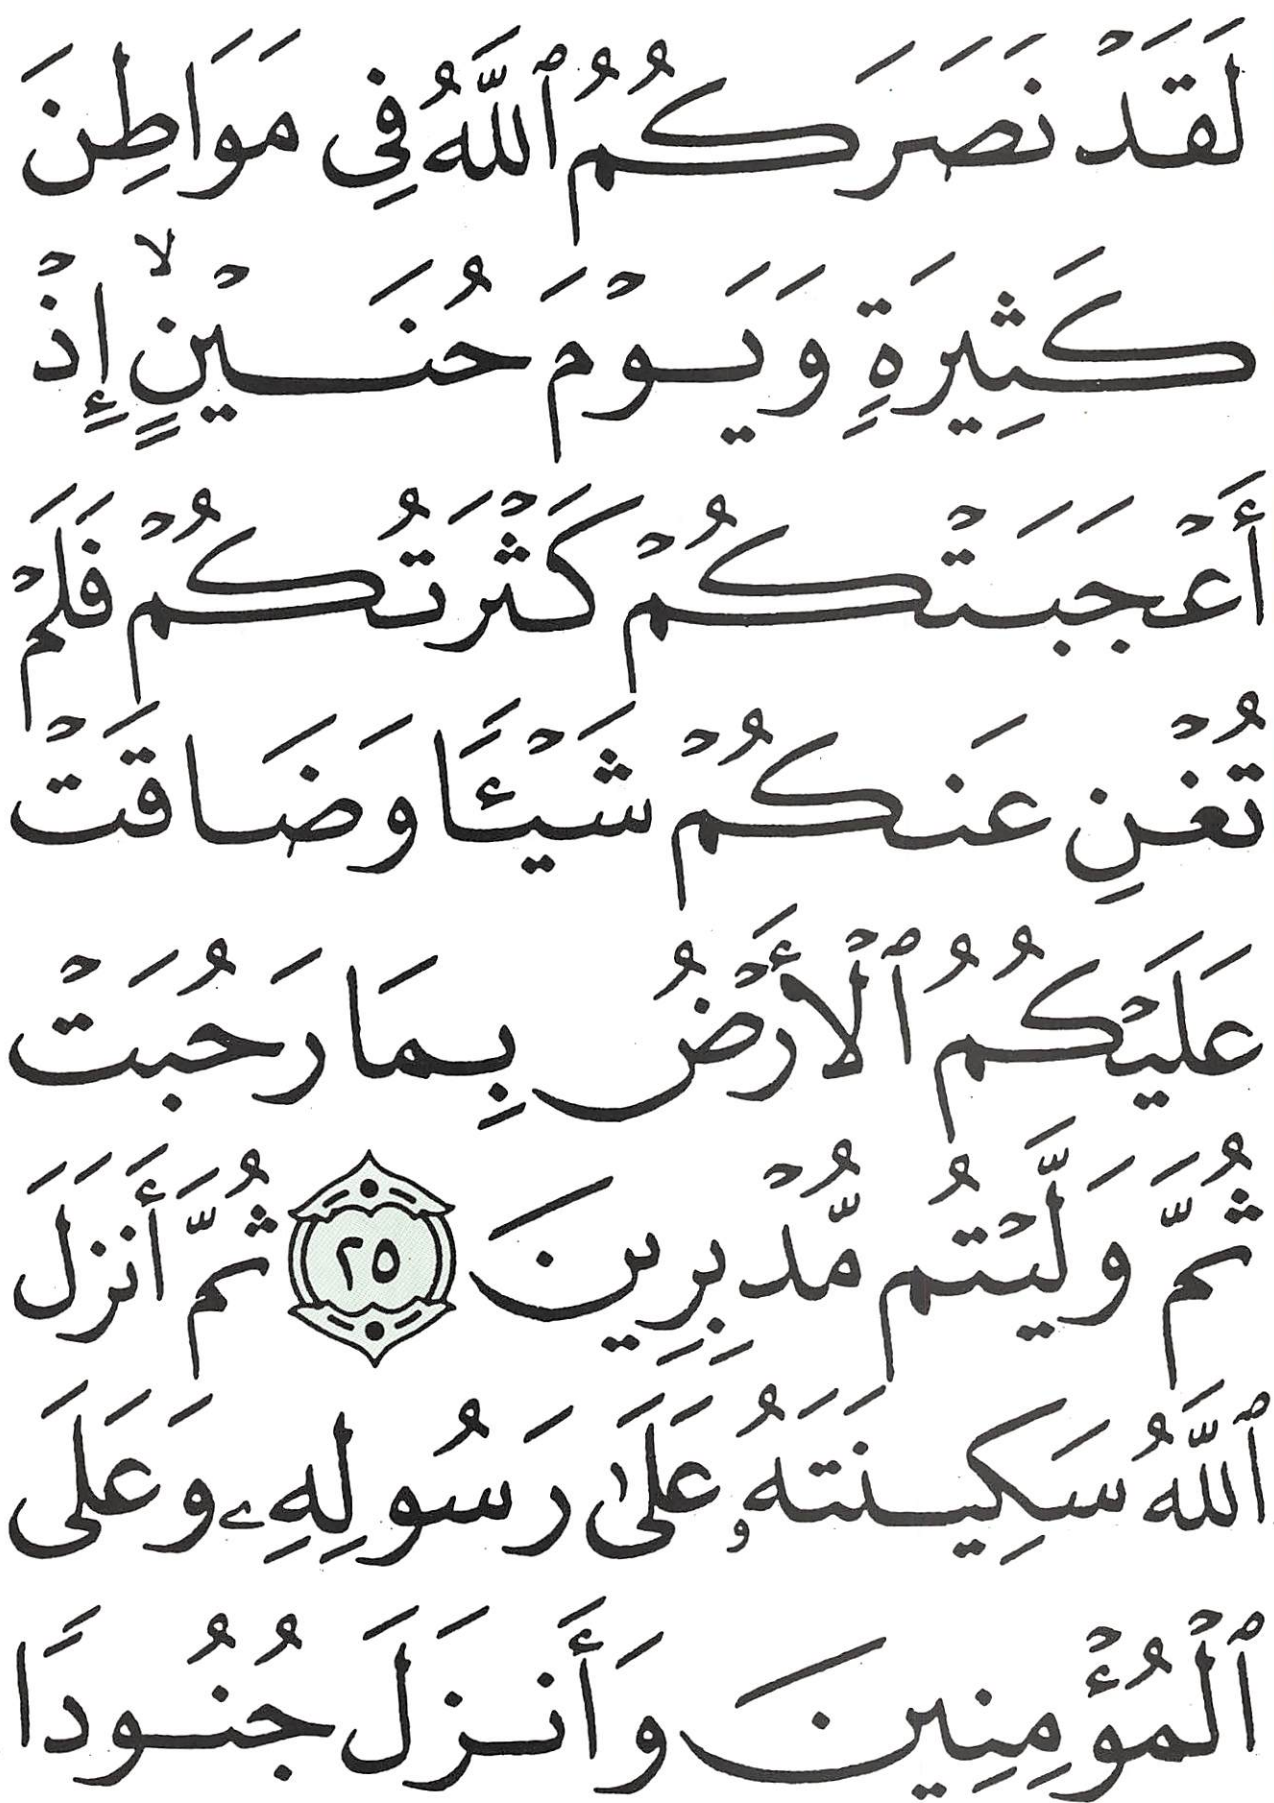 لَقَدْ نَصَرَكُمُ ٱللَّهُ فِى مَوَاطِنَ
كَثِيرَةٍ وَيَوْمَ حُنَيْنٍ ۙ إِذْ
أَعْجَبَتْكُمْ كَثْرَتُكُمْ فَلَمْ
تُغْنِ عَنكُمْ شَيْـًٔا وَضَاقَتْ
عَلَيْكُمُ ٱلْأَرْضُ بِمَا رَحُبَتْ
ثُمَّ وَلَّيْتُم مُّدْبِرِينَ ٢٥ ثُمَّ أَنزَلَ
ٱللَّهُ سَكِينَتَهُۥ عَلَىٰ رَسُولِهِۦ وَعَلَى
ٱلْمُؤْمِنِينَ وَأَنزَلَ جُنُودًا